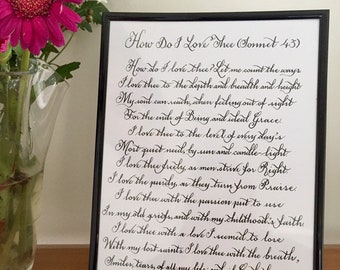 How Do I Love Thee (Sonnet 43)
How do I love thee? Let me count the ways
I love thee to the depth and breadth and height
My soul can reach, when feeling out of sight
For the ends of Being and ideal Grace.
I love thee to the level of every day's
Most quiet need, by sun and candle-light
I love thee freely, as men strive for Right
I love thee purely, as they turn from Praise.
I love thee with the passion put to use
In my old griefs, and with my childhood's faith
I love thee with a love I seemed to lose
With my lost saints. I love thee with the breath,
Smiles, tears, of all my life;